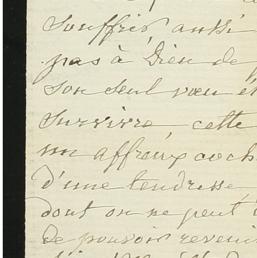 souffrir aussi
pas à Dieu de
son seul vœu é
survivre, cette
un affreux coch
d'une tendresse,
dont on ne peut
de pouvoir reveni